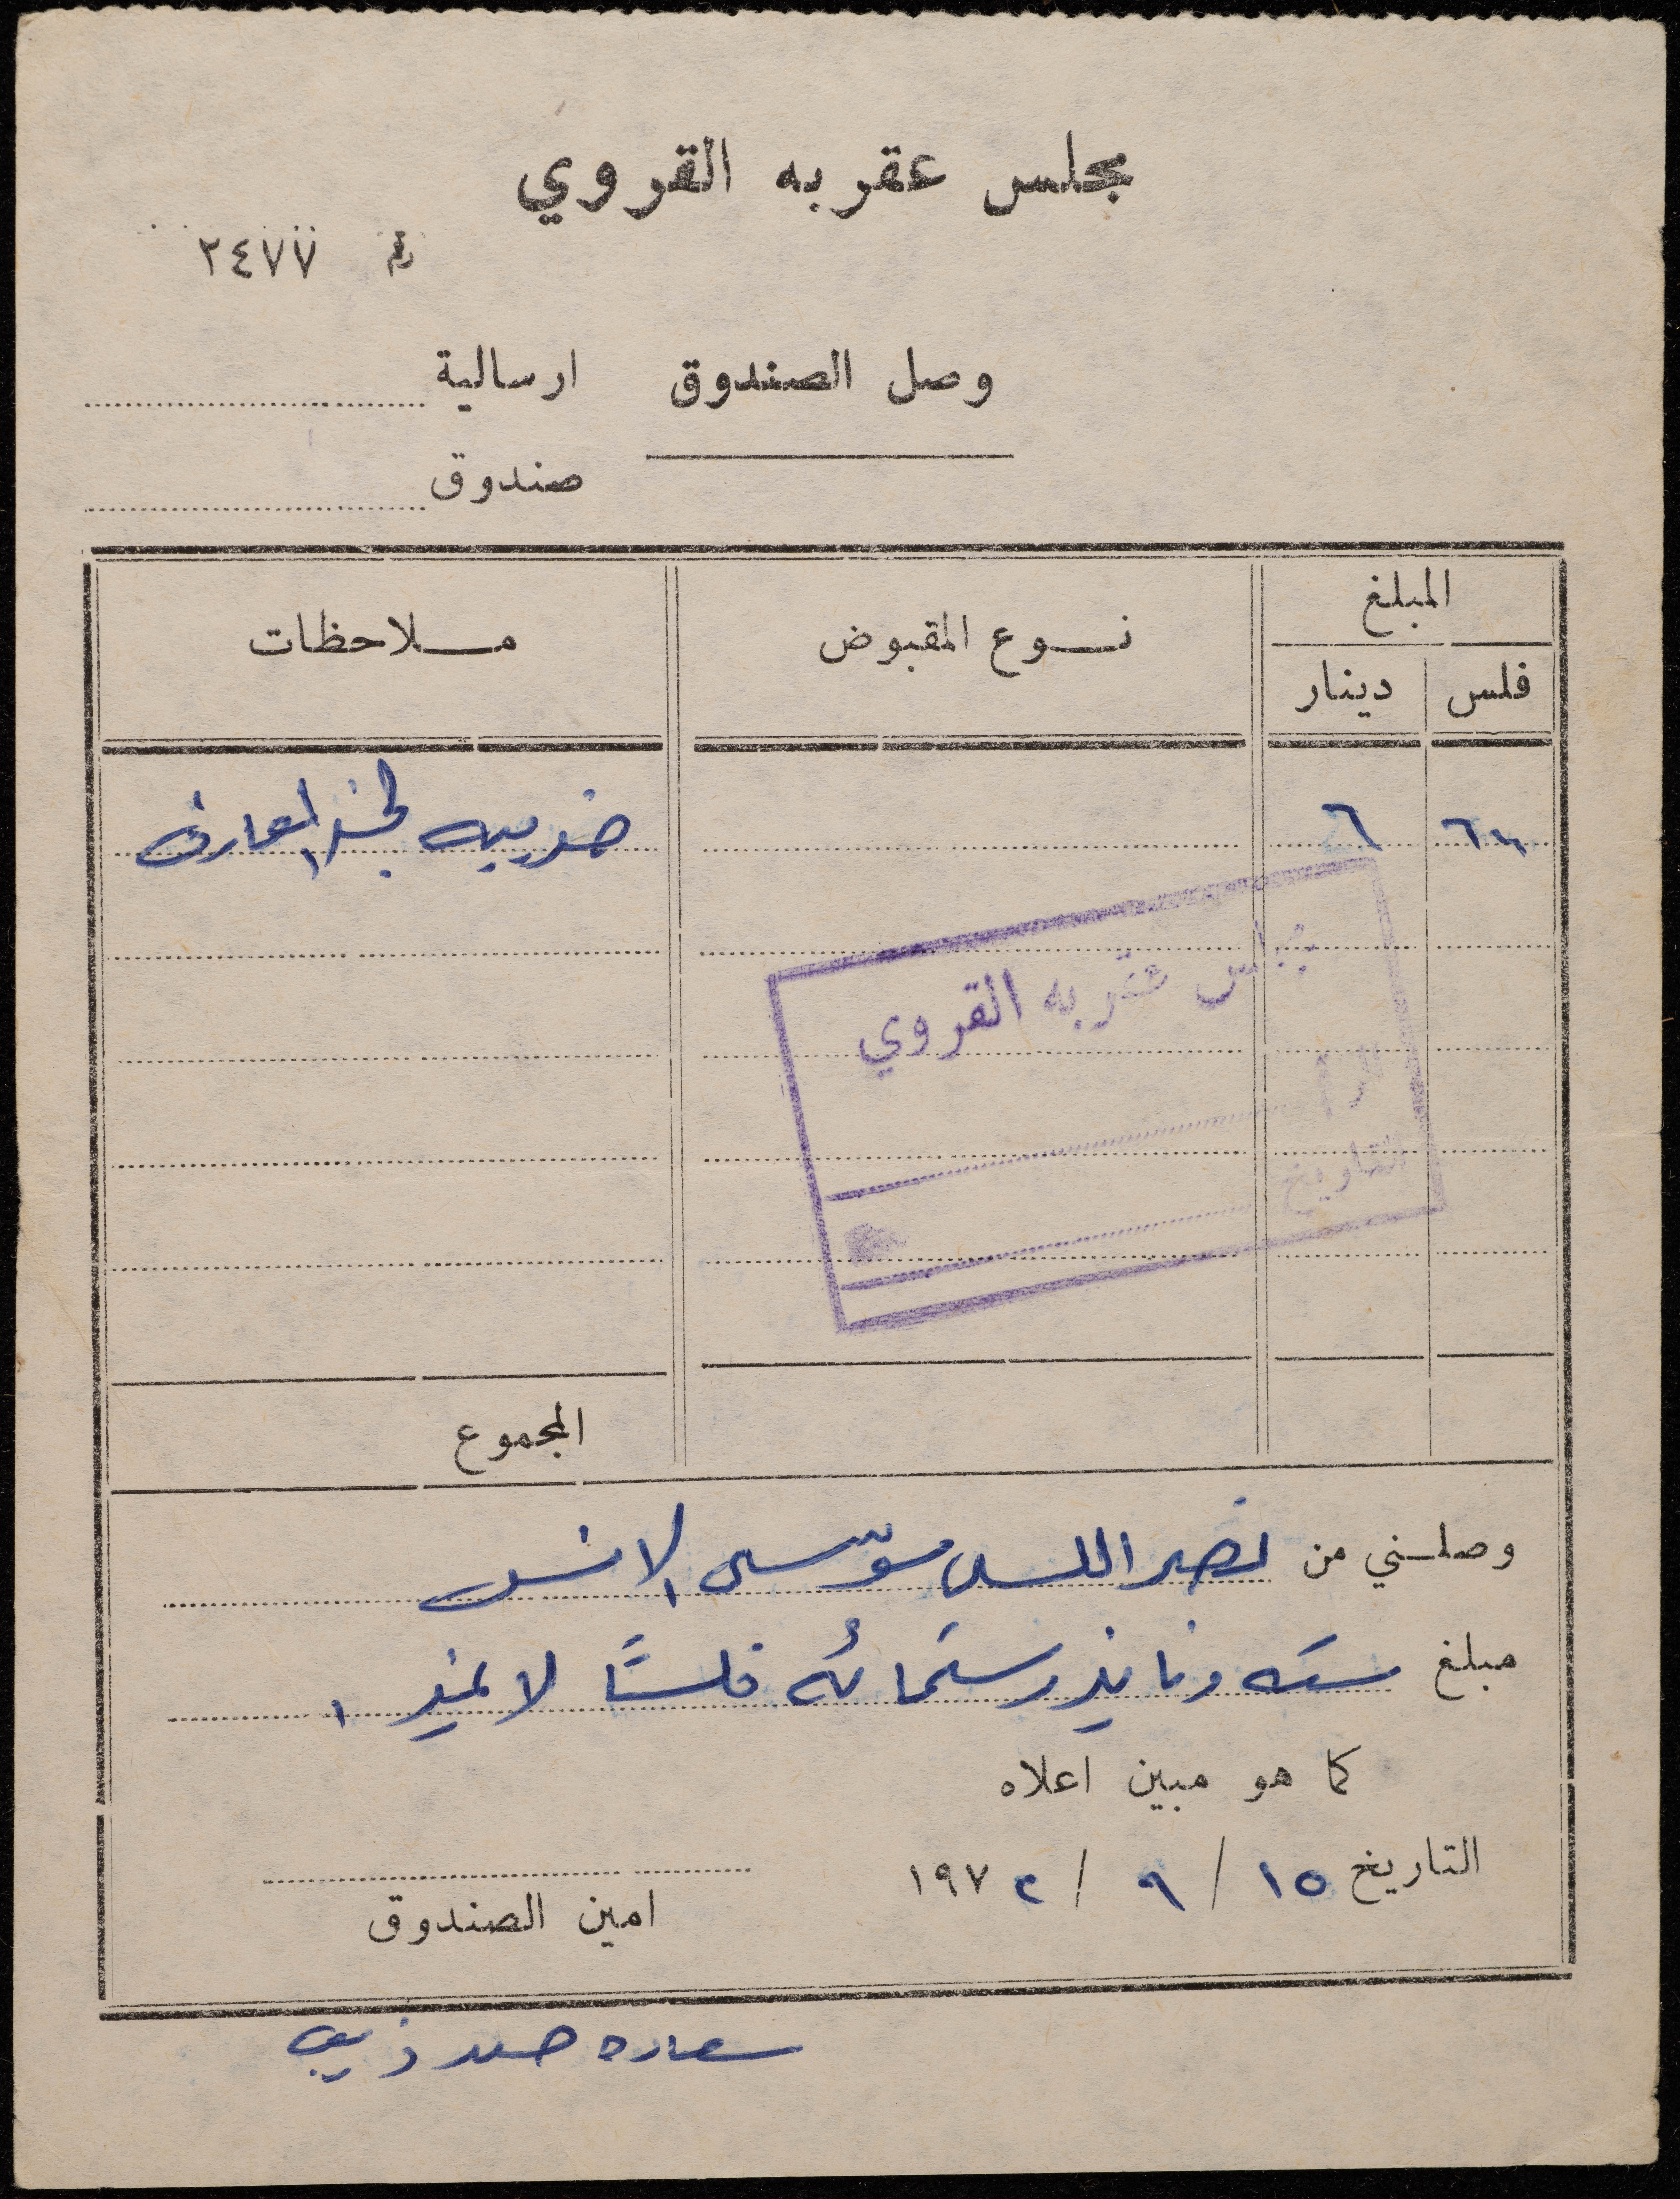 مجلس عقربه القروي
رقم ٢٤٧٧
وصل الصندوق ارسالية
صندوق
المبلغ
فلس دينار نوع المقبوض ملاحظات
٦٠٠ ٦ ضريبه لجنة المعارف
مجلس عقربه القروي
الرقم
التاريخ
المجموع
وصلني من نصر الله موسى
مبلغ سته دنانير وستمائه فلسًا لا غير
كما هو مبين اعلاه
التاريخ ١٥ / ٩ / ١٩٧٢
امين الصندوق
سعاده ذيب